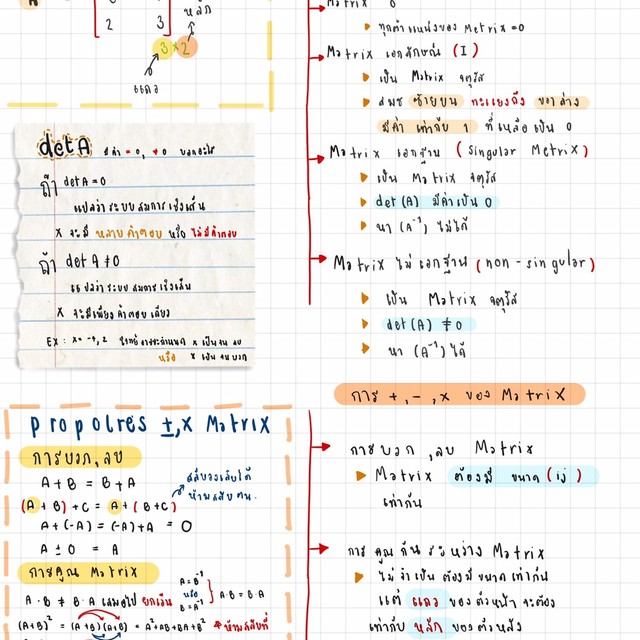 หลัก
2 3
3 × 2
แถว
detA มีค่า = 0, ≠ 0 บอกอะไร
ถ้า detA = 0
แปลว่า ระบบสมการเชิงเส้น
x จะมี หลายคำตอบ หรือ ไม่มีคำตอบ
ถ้า det A ≠ 0
แปลว่า ระบบสมการเชิงเส้น
x จะมีเพียงคำตอบเดียว
EX : x = -4, 2 โจทย์อาจจะกำหนด x เป็นจน.ลบ
หรือ x เป็นจน.บวก
propotres ±,× Matrix
การบวก, ลบ
A + B = B + A
(A + B) + C = A + (B + C)
สลับวงเล็บได้
ห้ามสลับ ตน.
A + (-A) = (-A) + A = 0
A ± 0 = A
การคูณ Matrix
A · B ≠ B · A เสมอไป ยกเว้น A = B⁻¹ หรือ B = A⁻¹ } A·B = B·A
(A+B)² = (A+B)(A+B) = A² + AB + BA + B² * ห้ามสลับที่
Matrix 0
ทุกตำแหน่งของ Metrix = 0
Matrix เอกลักษณ์ (I)
เป็น Matrix จตุรัส
สมช ซ้ายบน ทะแยงถึง ขวาล่าง
มีค่าเท่ากับ 1 ที่เหลือเป็น 0
Matrix เอกฐาน (Singular Metrix)
เป็น Matrix จตุรัส
det(A) มีค่าเป็น 0
หา (A⁻¹) ไม่ได้
Matrix ไม่เอกฐาน (non-singular)
เป็น Matrix จตุรัส
det(A) ≠ 0
หา (A⁻¹) ได้
การ +, -, × ของ Matrix
การบวก, ลบ Matrix
Matrix ต้องมี ขนาด (ij)
เท่ากัน
การคูณกันระหว่าง Matrix
ไม่จำเป็นต้องมีขนาดเท่ากัน
แต่ แถว ของตัวหน้า จะต้อง
เท่ากับ หลัก ของตัวหลัง